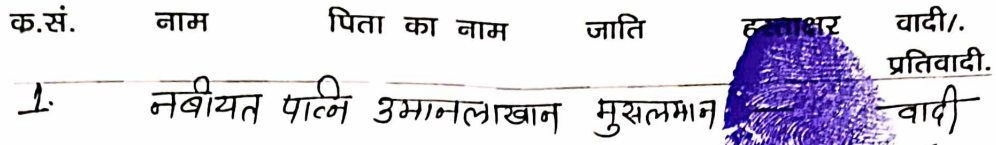 क.सं. नाम पिता का नाम जाति हस्ताक्षर वादी/.
प्रतिवादी.
1. नबीयत पत्नि उमानलाखान मुसलमान वादी